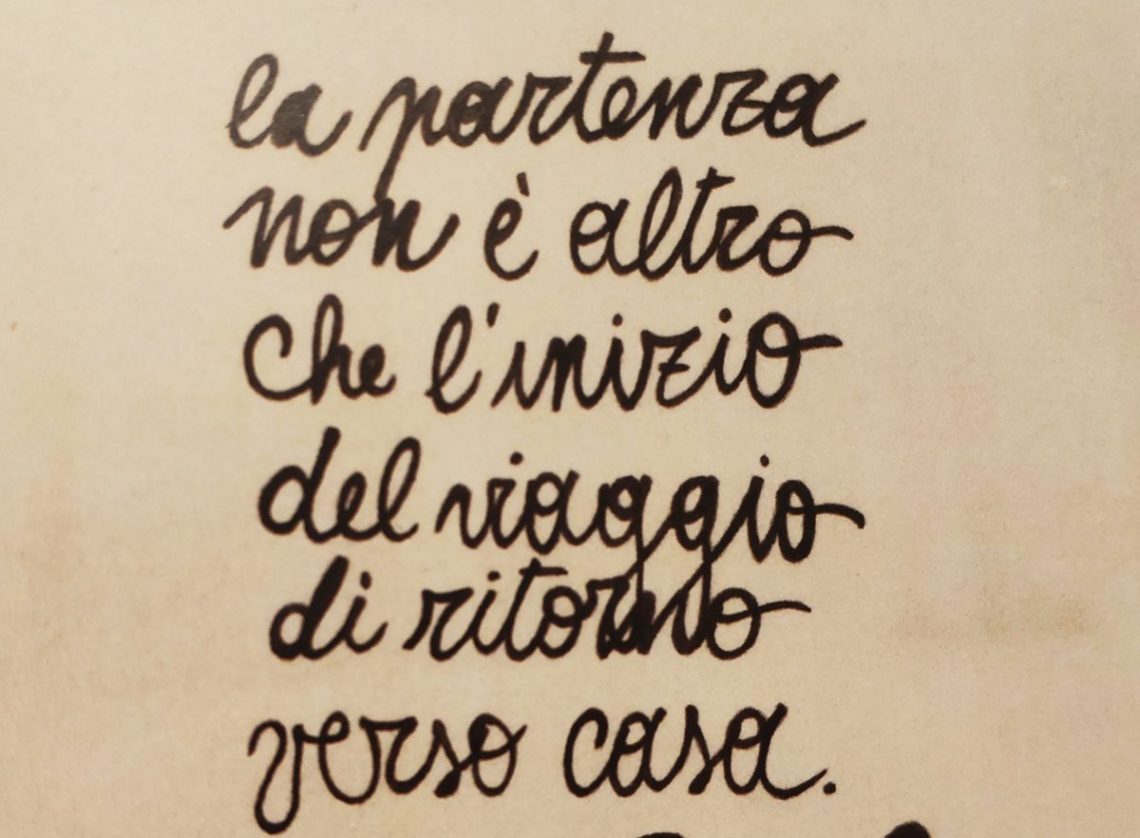 la partenza
non è altro
che l'inizio
del viaggio
di ritorno
verso casa.